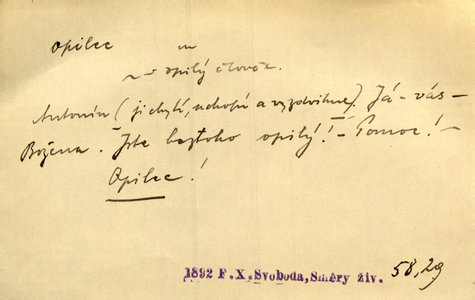 opilec m
~ = opilý člověk.
Antonín (ji chytí, uchopí a vyzdvihne). Já - vás -
Božena. Jste beztoho opilý! - Pomoc! -
Opilec!
1892 F.X.Svoboda, Směry živ. 58,29